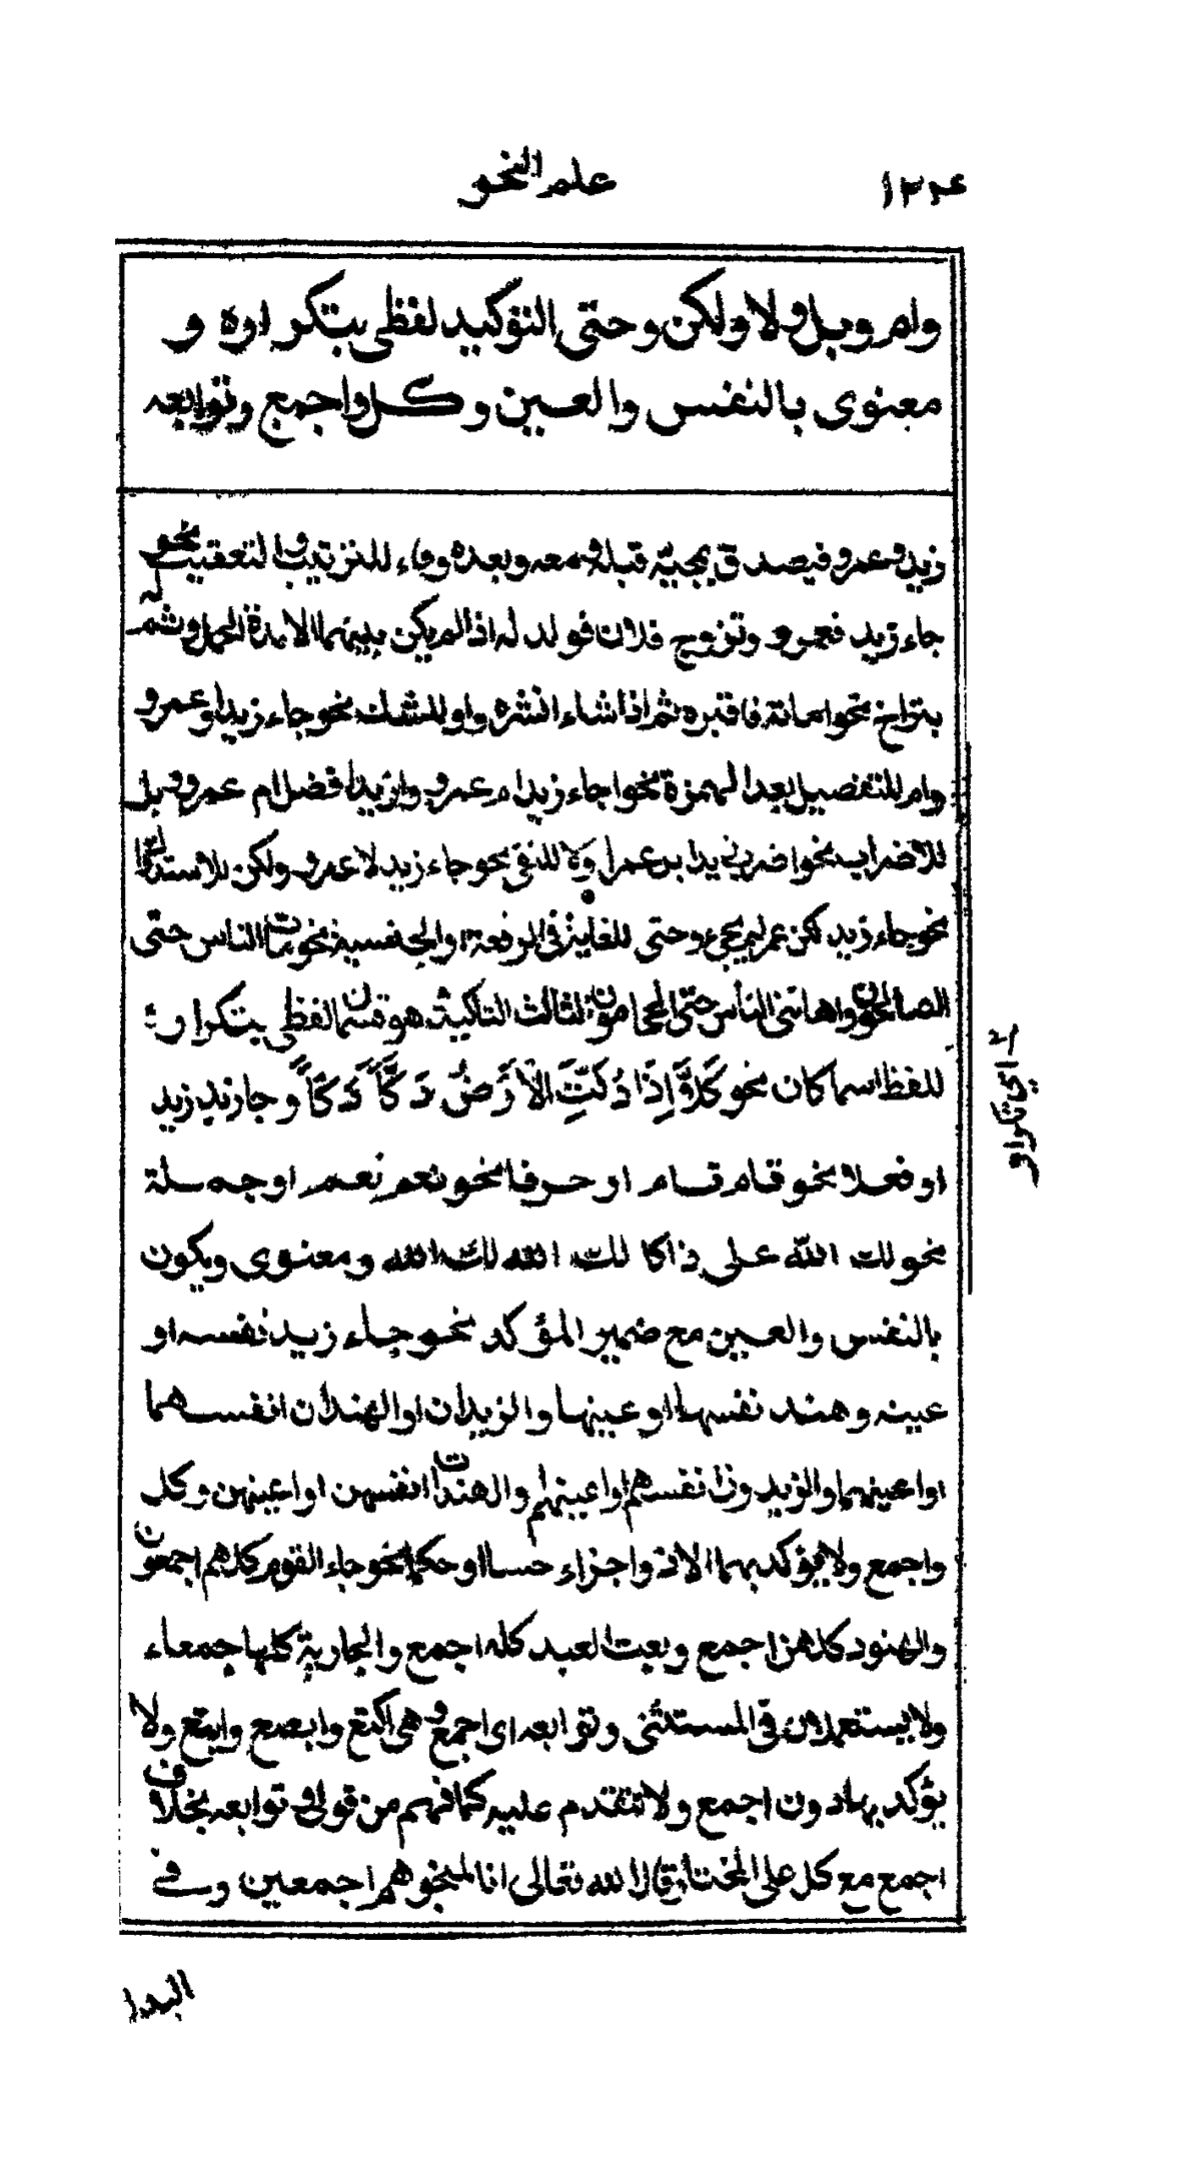 ١٢٤ علم النحو
وام وبل ولا ولكن وحتى التوكيد لفظى بتكراره و
معنوى بالنفس والعين وكل واجمع وتوابعه
زيد وعمرو فيصدق بمجيئه قبله ومعه وبعده وفاء للترتيب والتعقيب نحو
جاء زيد فعمرو وتزوج فلان فولد له اذا لم يكن بينهما الا مدة الحمل وثم له
بتراخ نحو اماته فاقبره ثم اذا شاء انشره واو للشك نحو جاء زيد او عمرو
وام للتفصيل بعد الهمزة نحو اجاء زيد ام عمرو وازيد افضل ام عمرو وبل
للاضراب نحو اضرب زيدا بل عمرا ولا للنفى نحو جاء زيد لا عمرو ولكن للاستدراك
نحو جاء زيد لكن عمر لم يجئ وحتى للغاية فى الرفعة او الخسة نحو مات الناس حتى
الصالحون واهاننى الناس حتى الحجامون الثالث التاكيد هو قسمان لفظى بتكراره
للفظ اسما كان نحو كَلَّا اِذَا دُكَّتِ الْاَرْضُ دَكًّا دَكًّا وجا زيد زيد
او فعلا نحو قام قام او حرفا نحو نعم نعم او جملة
نحو لك الله على ذاكا لك الله لك الله ومعنوى ويكون
بالنفس والعين مع ضمير المؤكد نحو جاء زيد نفسه او
عينه وهند نفسها او عينها والزيدان او الهندان انفسهما
او اعينهما والزيدون انفسهم او اعينهم والهندات انفسهن او اعينهن وكل
واجمع ولا يؤكد بهما الا ذو اجزاء حسا او حكما نحو جاء القوم كلهم اجمعون
والهنود كلهن اجمع وبعت العبد كله اجمع والجارية كلها جمعاء
ولا يستعملان فى المستثنى وتوابعه اى اجمع وهى اكتع وابصع وابتع ولا
يؤكد بها دون اجمع ولا تتقدم عليه كما فهم من قولى وتوابعه بخلاف
اجمع مع كل على المختار قال الله تعالى انا لمنجوهم اجمعين وفى
اي تكراره
البدا